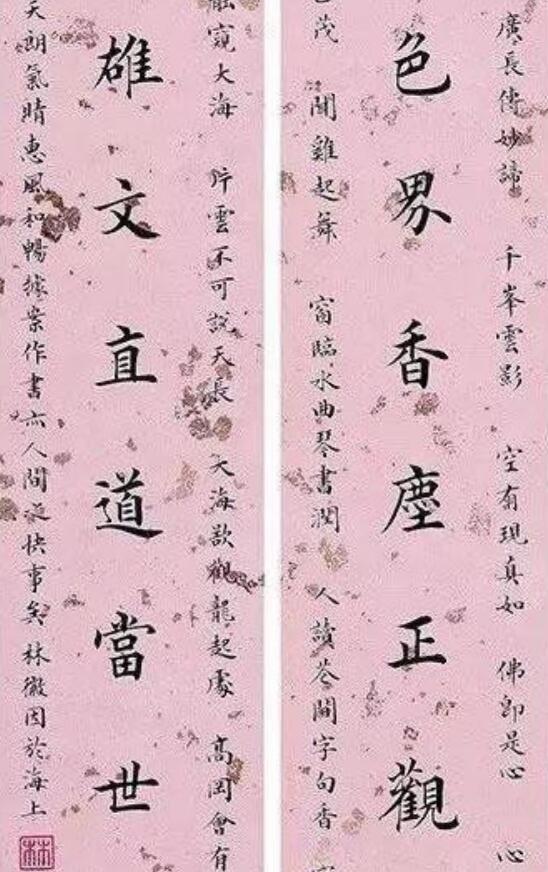 廣長傳妙諦 千峯雲影 空有現真如 佛即是心 心
色界香塵正觀
茂 聞雞起舞 窗臨水曲琴書潤 人讀花間字句香
窺大海 片雲不可說天長 大海欲觀龍起處 高岡會有
雄文直道當世
天朗氣晴惠風和暢據案作書亦人間快事矣 林徽因於海上
林